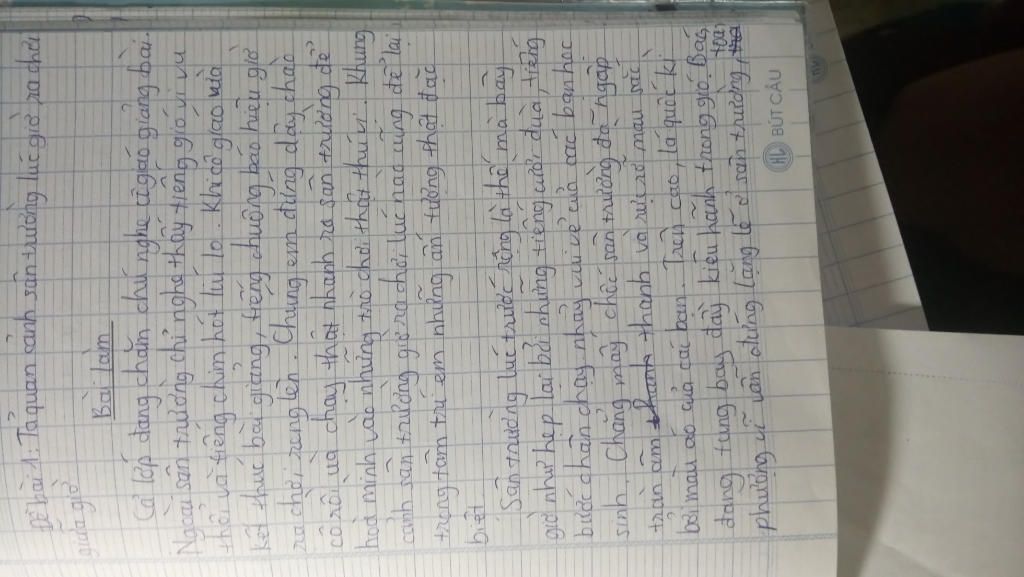 Đề bài 1: Tả quan cảnh sân trường lúc giờ ra chơi
giữa giờ
Bài làm
Cả lớp đang chăm chú nghe cô giáo giảng bài.
Ngoài sân trường chỉ nghe thấy tiếng gió vi vu
thổi và tiếng chim hót líu lo. Khi cô giáo vừa
kết thúc bài giảng, tiếng chuông báo hiệu giờ
ra chơi vang lên. Chúng em đứng dậy chào
cô rồi và chạy thật nhanh ra sân trường để
hoà mình vào những trò chơi thật thú vị. Khung
cảnh sân trường giờ ra chơi lúc nào cũng để lại
trong tâm trí em những ấn tượng thật đặc
biệt.
Sân trường lúc trước rộng là thế mà bây
giờ như hẹp lại bởi những tiếng cười đùa, tiếng
bước chân chạy nhảy vui vẻ của các bạn học
sinh. Chẳng mấy chốc sân trường đã ngập
tràn âm thanh và rực rỡ màu sắc
bởi màu áo của các bạn. Trên cao, lá quốc kì
đang tung bay đầy kiêu hãnh trong gió. Bác
phượng vĩ vẫn đứng lặng lẽ ở sân trường,
HL BÚT CÂU